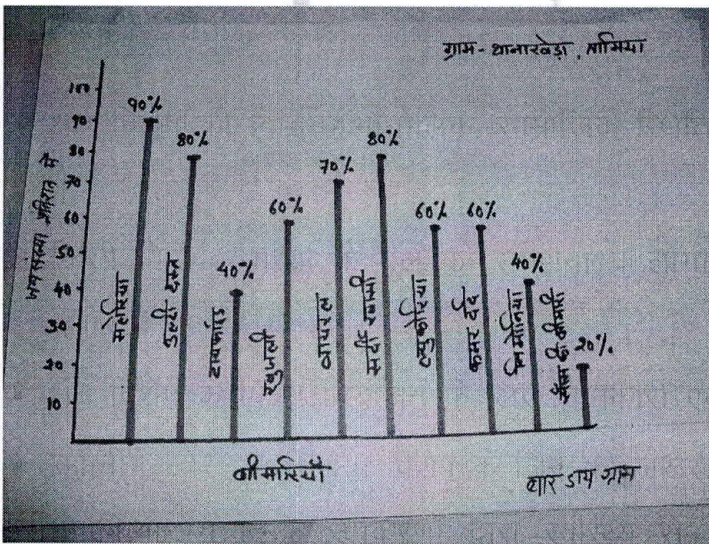 ग्राम - थानाखेड़ा, तामिया
जनसंख्या प्रतिशत में
100
90
80
70
60
50
40
30
20
10
90%
80%
40%
60%
70%
80%
60%
60%
40%
20%
मलेरिया
उल्टी दस्त
टायफाईड
खुजली
वायरल
सर्दी खांसी
ल्युकोरिया
कमर दर्द
निमोनिया
साँस की बीमारी
बीमारियाँ
बार डाय ग्राम